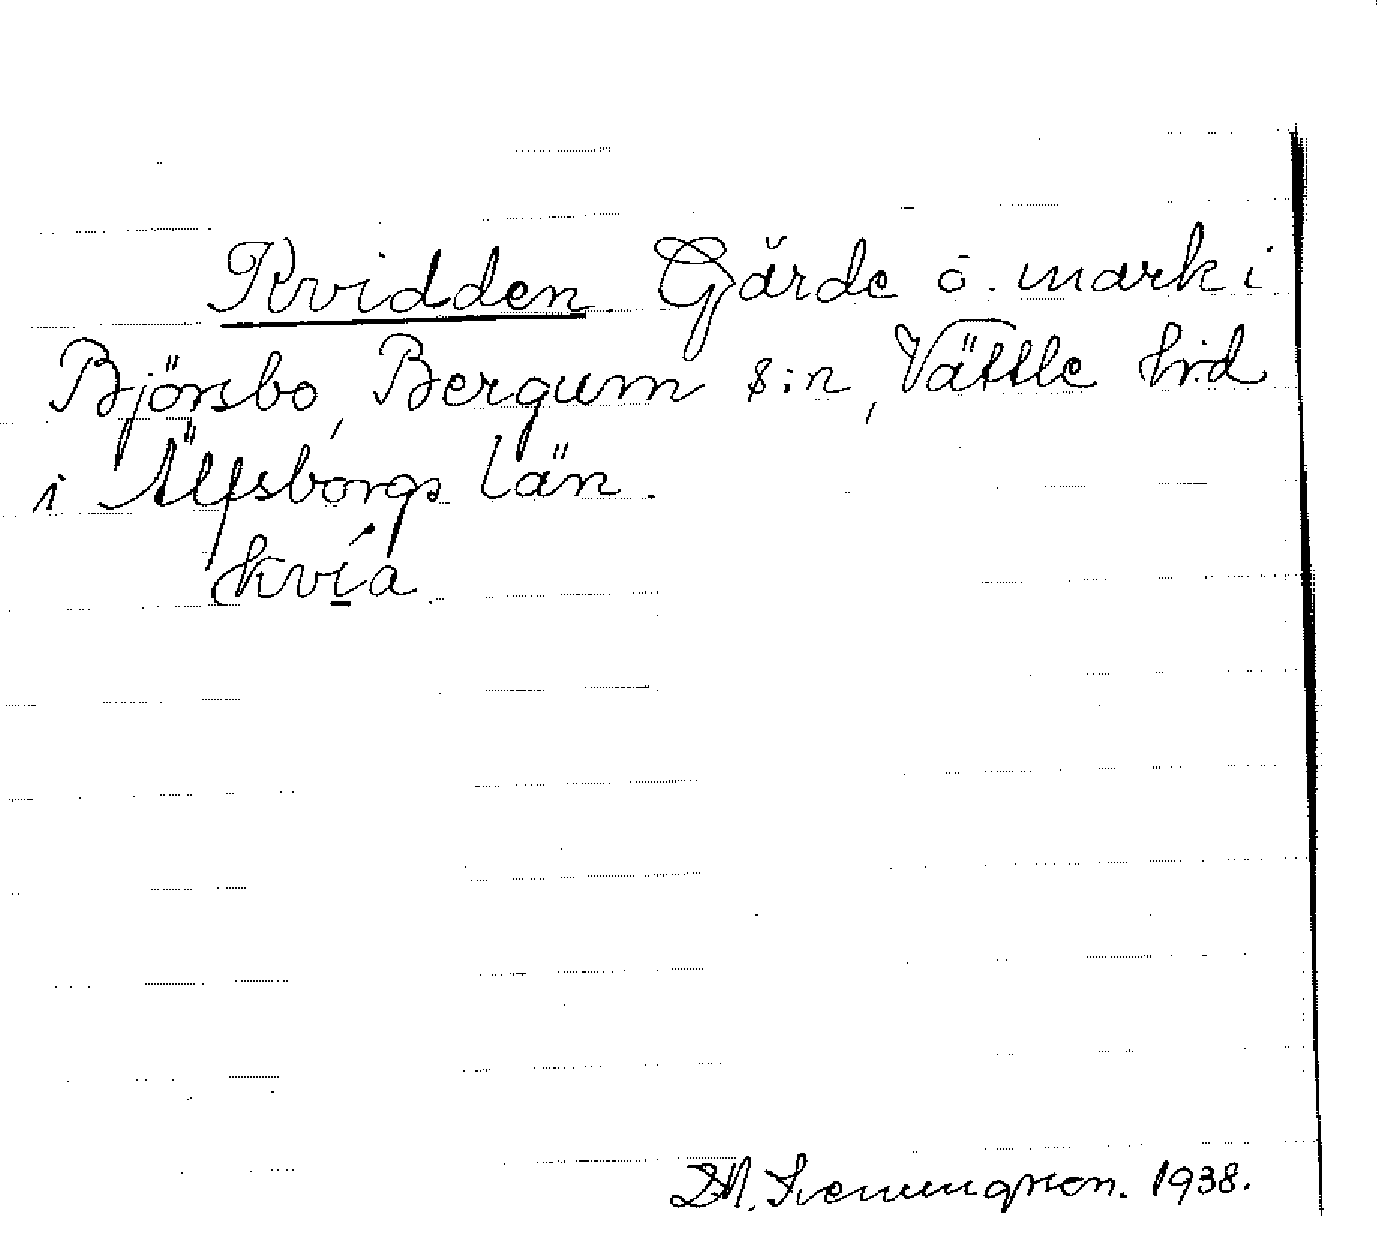 Kvidden Gärde o. mark i
Björsbo, Bergum s:n, Vättle hrd
i Älfsborgs län.
kvía
1938.